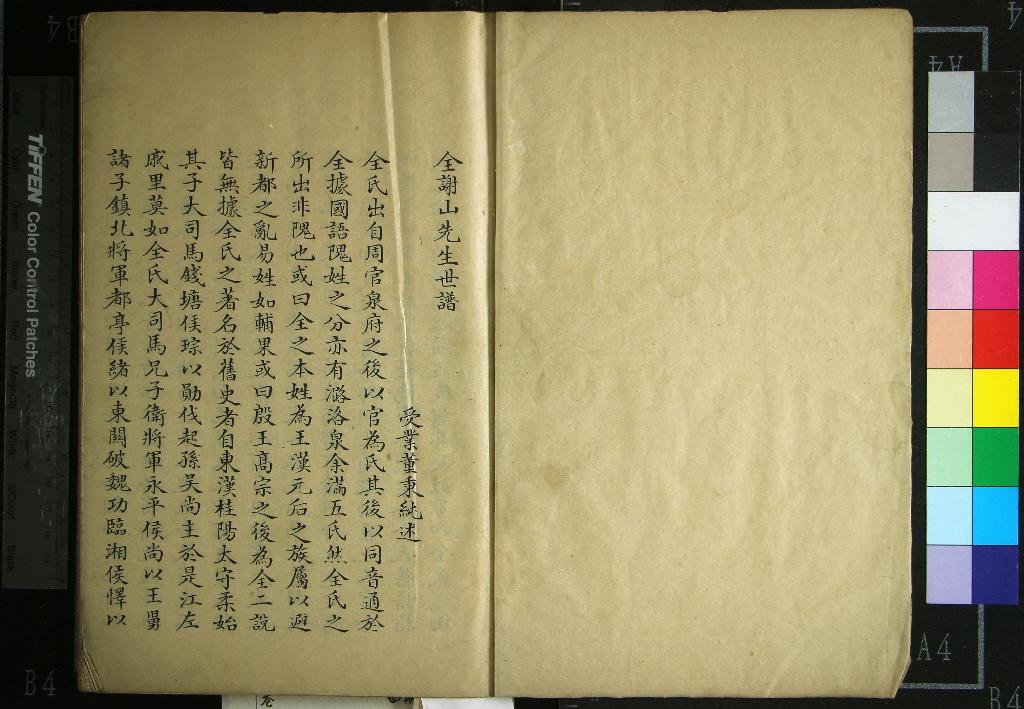 全謝山先生世譜
受業董秉純述
全氏出自周官泉府之後以官為氏其後以同音通於
全據國語隗姓之分亦有潞洛泉余滿五氏然全氏之
所出非隗也或曰全之本姓為王漢元后之族屬以避
新都之亂易姓如輔果或曰殷王高宗之後為全二說
皆無據全氏之著名於舊史者自東漢桂陽太守柔始
其子大司馬錢塘侯琮以勛伐起孫吳尚主於是江左
戚里莫如全氏大司馬兄子衛將軍永平侯尚以王舅
諸子鎮北將軍都亭侯緒以東關破魏功臨湘侯懌以
TIFFEN Color Control Patches
B4
B4
A4
A4
B4
卷